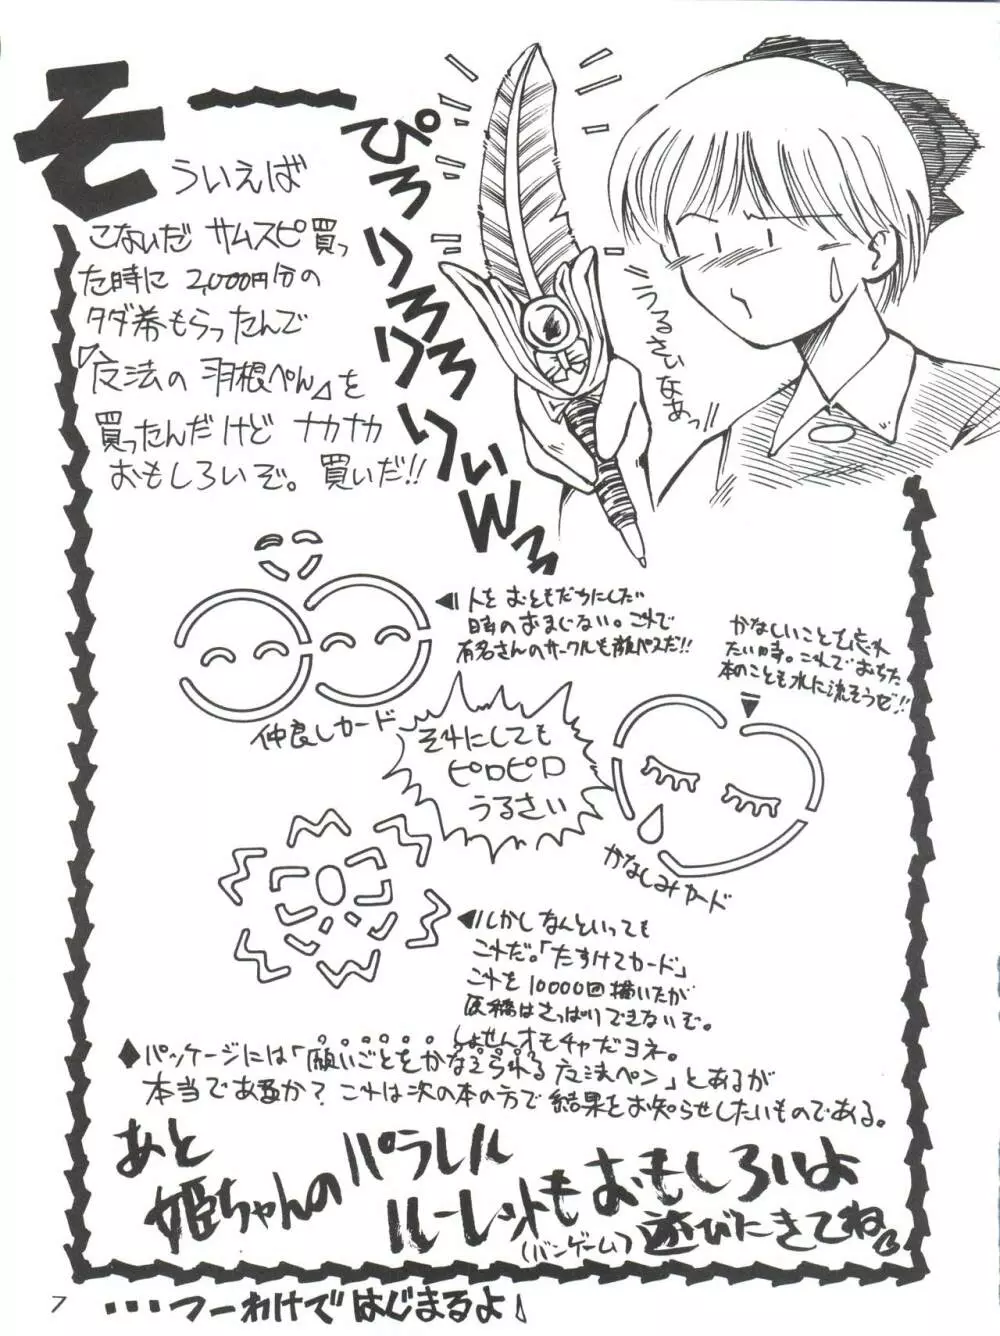 そーういえば
こないだ サムスピ買っ
た時に 2,000円分の
タダ券もらったんで
「魔法の羽根ぺん」を
買ったんだけど ナカナカ
おもしろいぞ。買いだ!!
ぴろりろりろりろりぃWろ
うるさいなぁっ!!
人をおともだちにしたい
時のおまじない。これで
有名さんのサークルも顔パスだ!!
仲良しカード
かなしいことを忘れ
たい時。これでおちた
本のことも水に流そうぜ!!
かなしみカード
それにしても
ピロピロ
うるさい
しかしなんといっても
これだ。「たすけてカード」
これを10000回描いたが
原稿はさっぱりできないぞ。
しょせんオモチャだヨネ。
◆パッケージには「願いごとをかなえられる魔法ペン」とあるが
本当であるか？これは次の本の方で結果をお知らせしたいものである。
あと
姫ちゃんのパラレル
ルーレットもおもしろいよ
(バンゲーム) 遊びにきてね
7
・・・つーわけではじまるよ♪